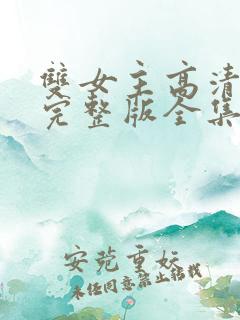 雙女主高清
完整版全集
安苑重妘
未经同意禁止转载